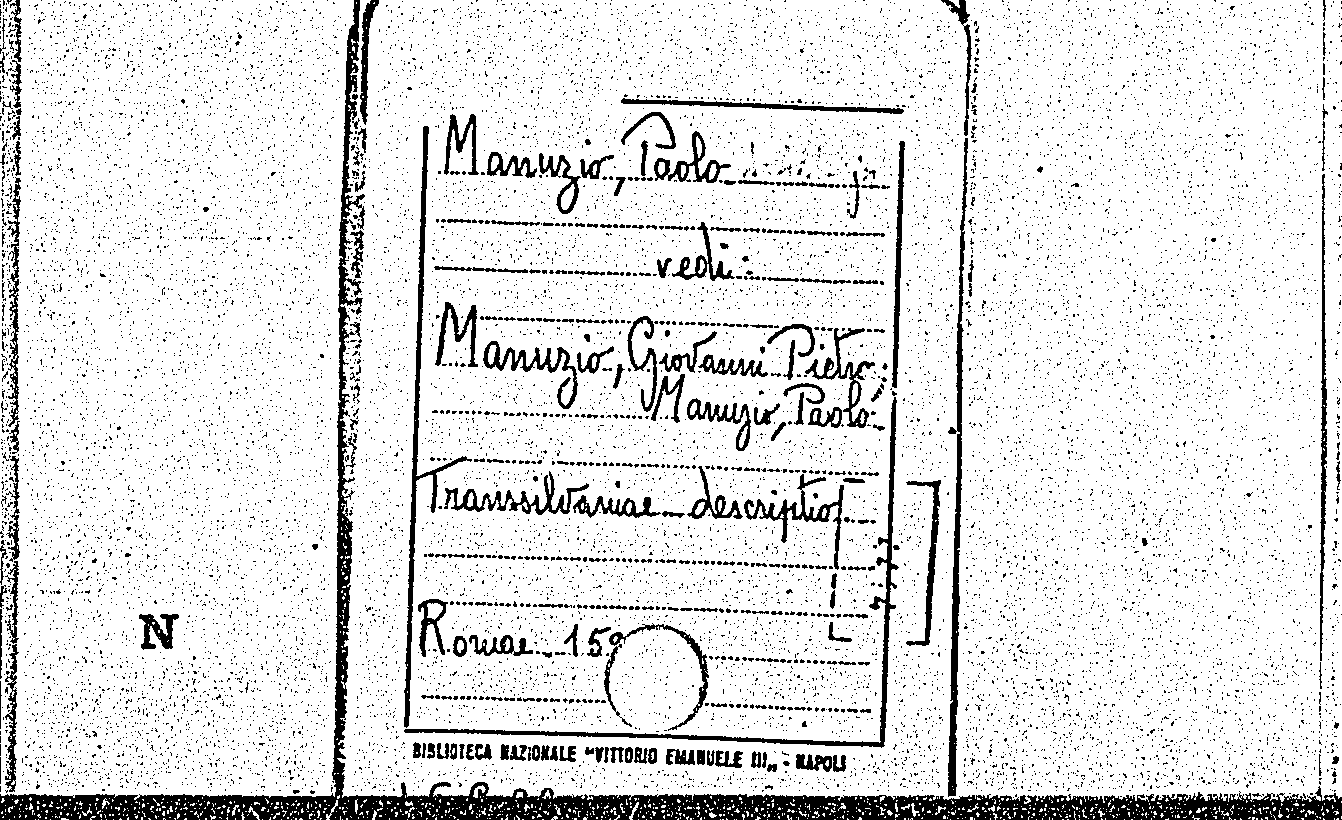 Manuzio, Paolo jr
vedi:
Manuzio, Giovanni Pietro;
Manuzio, Paolo.
Transsilvaniae descriptio
Romae 159
N
BIBLIOTECA NAZIONALE "VITTORIO EMANUELE III„ - NAPOLI